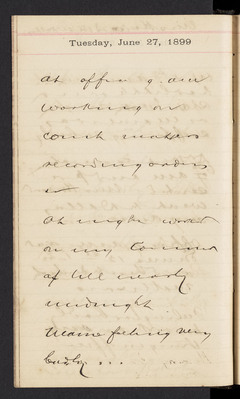 Tuesday, June 27, 1899
At office
working on
court matters
recording orders
At night worked
on my
till nearly
midnight
feeling very
badly ...